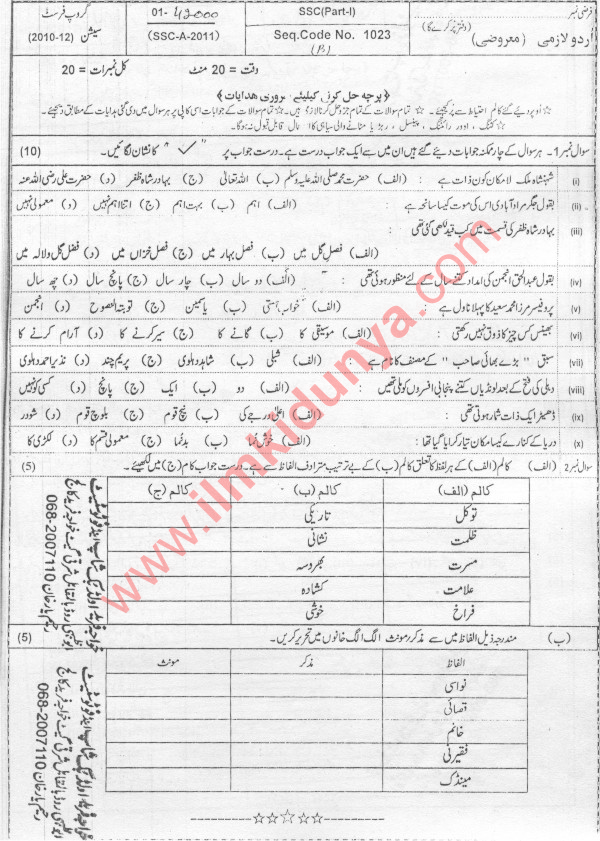 رضی نمبر
اُردو لازمی (معروضی) (دفتر پُر کرے گا)
SSC(Part-I)
Seq.Code No. 1023
01-42000
(SSC-A-2011)
گروپ فرسٹ
سیشن (2010-12)
وقت = 20 منٹ کل نمبرات = 20
﴿ پرچہ حل کرنے کیلیئے ضروری ہدایات ﴾
☆ اُوپر دیئے گئے کالم احتیاط سے پُر کیجئے۔ ☆ تمام سوالات کے تمام جزو حل کرنا لازم ہیں۔ ☆ تمام سوالات کے جوابات اسی کاپی پر ہر سوال میں دی گئی ہدایات کے مطابق دیجئے۔
☆ کٹنگ، اوور رائٹنگ، پینسل، ربڑ یا مٹانے والی سیاہی کا استعمال قابل قبول نہ ہوگا۔
سوال نمبر 1۔ ہر سوال کے چار ممکنہ جوابات دیئے گئے ہیں ان میں سے ایک جواب درست ہے۔ درست جواب پر " ✓ " کا نشان لگائیں۔ (10)
(i) شہنشاہ ملک لامکان کون ذات ہے : (الف) حضرت محمد صلی اللہ علیہ وسلم (ب) اللہ تعالیٰ (ج) بہادر شاہ ظفر (د) حضرت علی رضی اللہ عنہ
(ii) بقول جگر مراد آبادی اس کی موت کیسا سانحہ ہے : (الف) اہم (ب) بہت اہم (ج) اتنا اہم نہیں (د) معمولی نہیں
(iii) بہادر شاہ ظفر کی قسمت میں کب قید لکھی گئی تھی
(الف) فصلِ گل میں (ب) فصل بہار میں (ج) فصل خزاں میں (د) فصل گل و لالہ میں
(iv) بقول عبدالحق انجمن کی امداد کتنے سال کے لئے منظور ہوئی تھی (الف) دو سال (ب) چار سال (ج) پانچ سال (د) چھ سال
(v) پروفیسر مرزا محمد سعید کا پہلا ناول ہے : (الف) خوابِ ہستی (ب) یاسمین (ج) توبتہ النصوح (د) انجمن
(vi) بھینس کس چیز کا ذوق نہیں رکھتی : (الف) موسیقی کا (ب) گانے کا (ج) سیر کرنے کا (د) آرام کرنے کا
(vii) سبق " بڑے بھائی صاحب " کے مصنف کا نام ہے : (الف) شبلی (ب) شاہد دہلوی (ج) پریم چند (د) نذیر احمد دہلوی
(viii) دہلی کی فتح کے بعد لونڈیاں کتنے پنجابی افسروں کو ملی تھیں (الف) دو (ب) ایک (ج) پانچ (د) کسی کو نہیں
(ix) ڈھیڑ ایک ذات شمار ہوتی تھی : (الف) اعلیٰ درجے کی (ب) نیچ قوم (ج) بلوچ قوم (د) شودر
(x) دریا کے کنارے کیسا مکان تیار کرایا گیا تھا : (الف) خوش نما (ب) بدنما (ج) معمولی قسم کا (د) لکڑی کا
سوال نمبر 2 (الف) کالم (الف) کے ہر لفظ کا تعلق کالم (ب) کے بے ترتیب مترادف الفاظ سے ہے۔ درست جواب کالم (ج) میں لکھیئے۔ (5)
کالم (الف) کالم (ب) کالم (ج)
توکل تاریکی
ظلمت نشانی
مسرت بھروسہ
علامت کشادہ
فراخ خوشی
خواجہ فرید اولڈ بک شاپ اینڈ فوٹوسٹیٹ
068-2007110 رحیم یار خان
(ب) مندرجہ ذیل الفاظ میں سے مذکر و مونث الگ الگ خانوں میں تحریر کریں۔ (5)
الفاظ مذکر مونث
نواسی
قصائی
خانم
فقیرنی
مینڈک
خواجہ فرید اولڈ بک شاپ اینڈ فوٹوسٹیٹ
068-2007110 رحیم یار خان
www.ilmkidunya.com